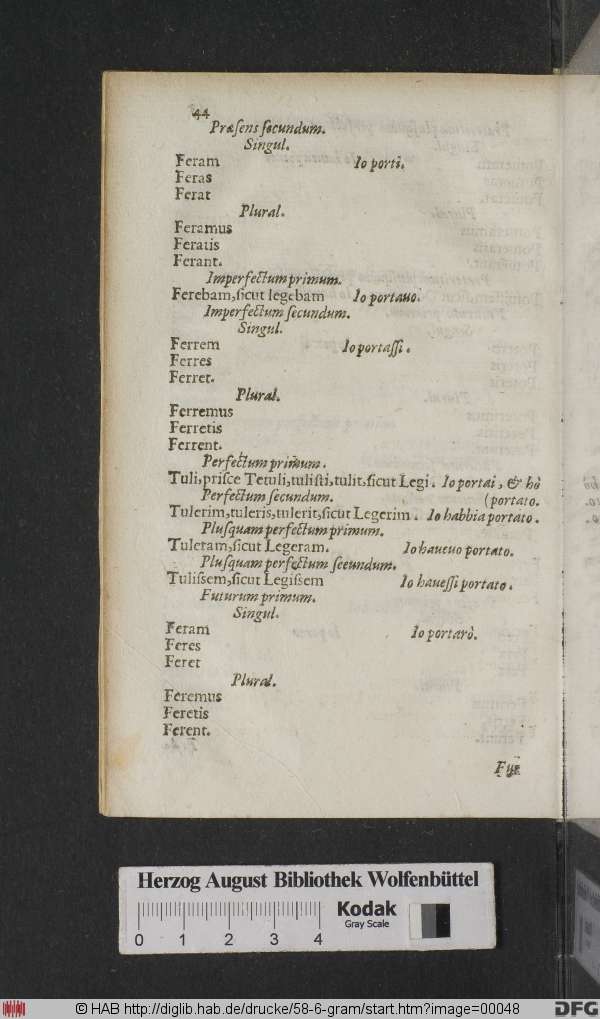 44
Præsens secundum.
Singul.
Feram Io porti.
Feras
Ferat
Plural.
Feramus
Feratis
Ferant.
Imperfectum primum.
Ferebam, sicut legebam Io portauo.
Imperfectum secundum.
Singul.
Ferrem Io portassi.
Ferres
Ferret.
Plural.
Ferremus
Ferretis
Ferrent.
Perfectum primum.
Tuli, prisce Tetuli, tulisti, tulit, sicut Legi. Io portai, & hò
Perfectum secundum. (portato.
Tulerim, tuleris, tulerit, sicut Legerim. Io habbia portato.
Plusquam perfectum primum.
Tuleram, sicut Legeram. Io haueuo portato.
Plusquam perfectum secundum.
Tulissem, sicut Legissem Io hauessi portato.
Futurum primum.
Singul.
Feram Io portarò.
Feres
Feret
Plural.
Feremus
Feretis
Ferent.
Herzog August Bibliothek Wolfenbüttel
0 1 2 3 4
Kodak
Gray Scale
© HAB http://diglib.hab.de/drucke/58-6-gram/start.htm?image=00048
DFG